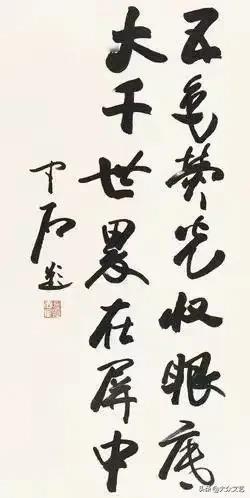 五色荧光收眼底
大千世界在屏中
中石题
头条 @大众文艺